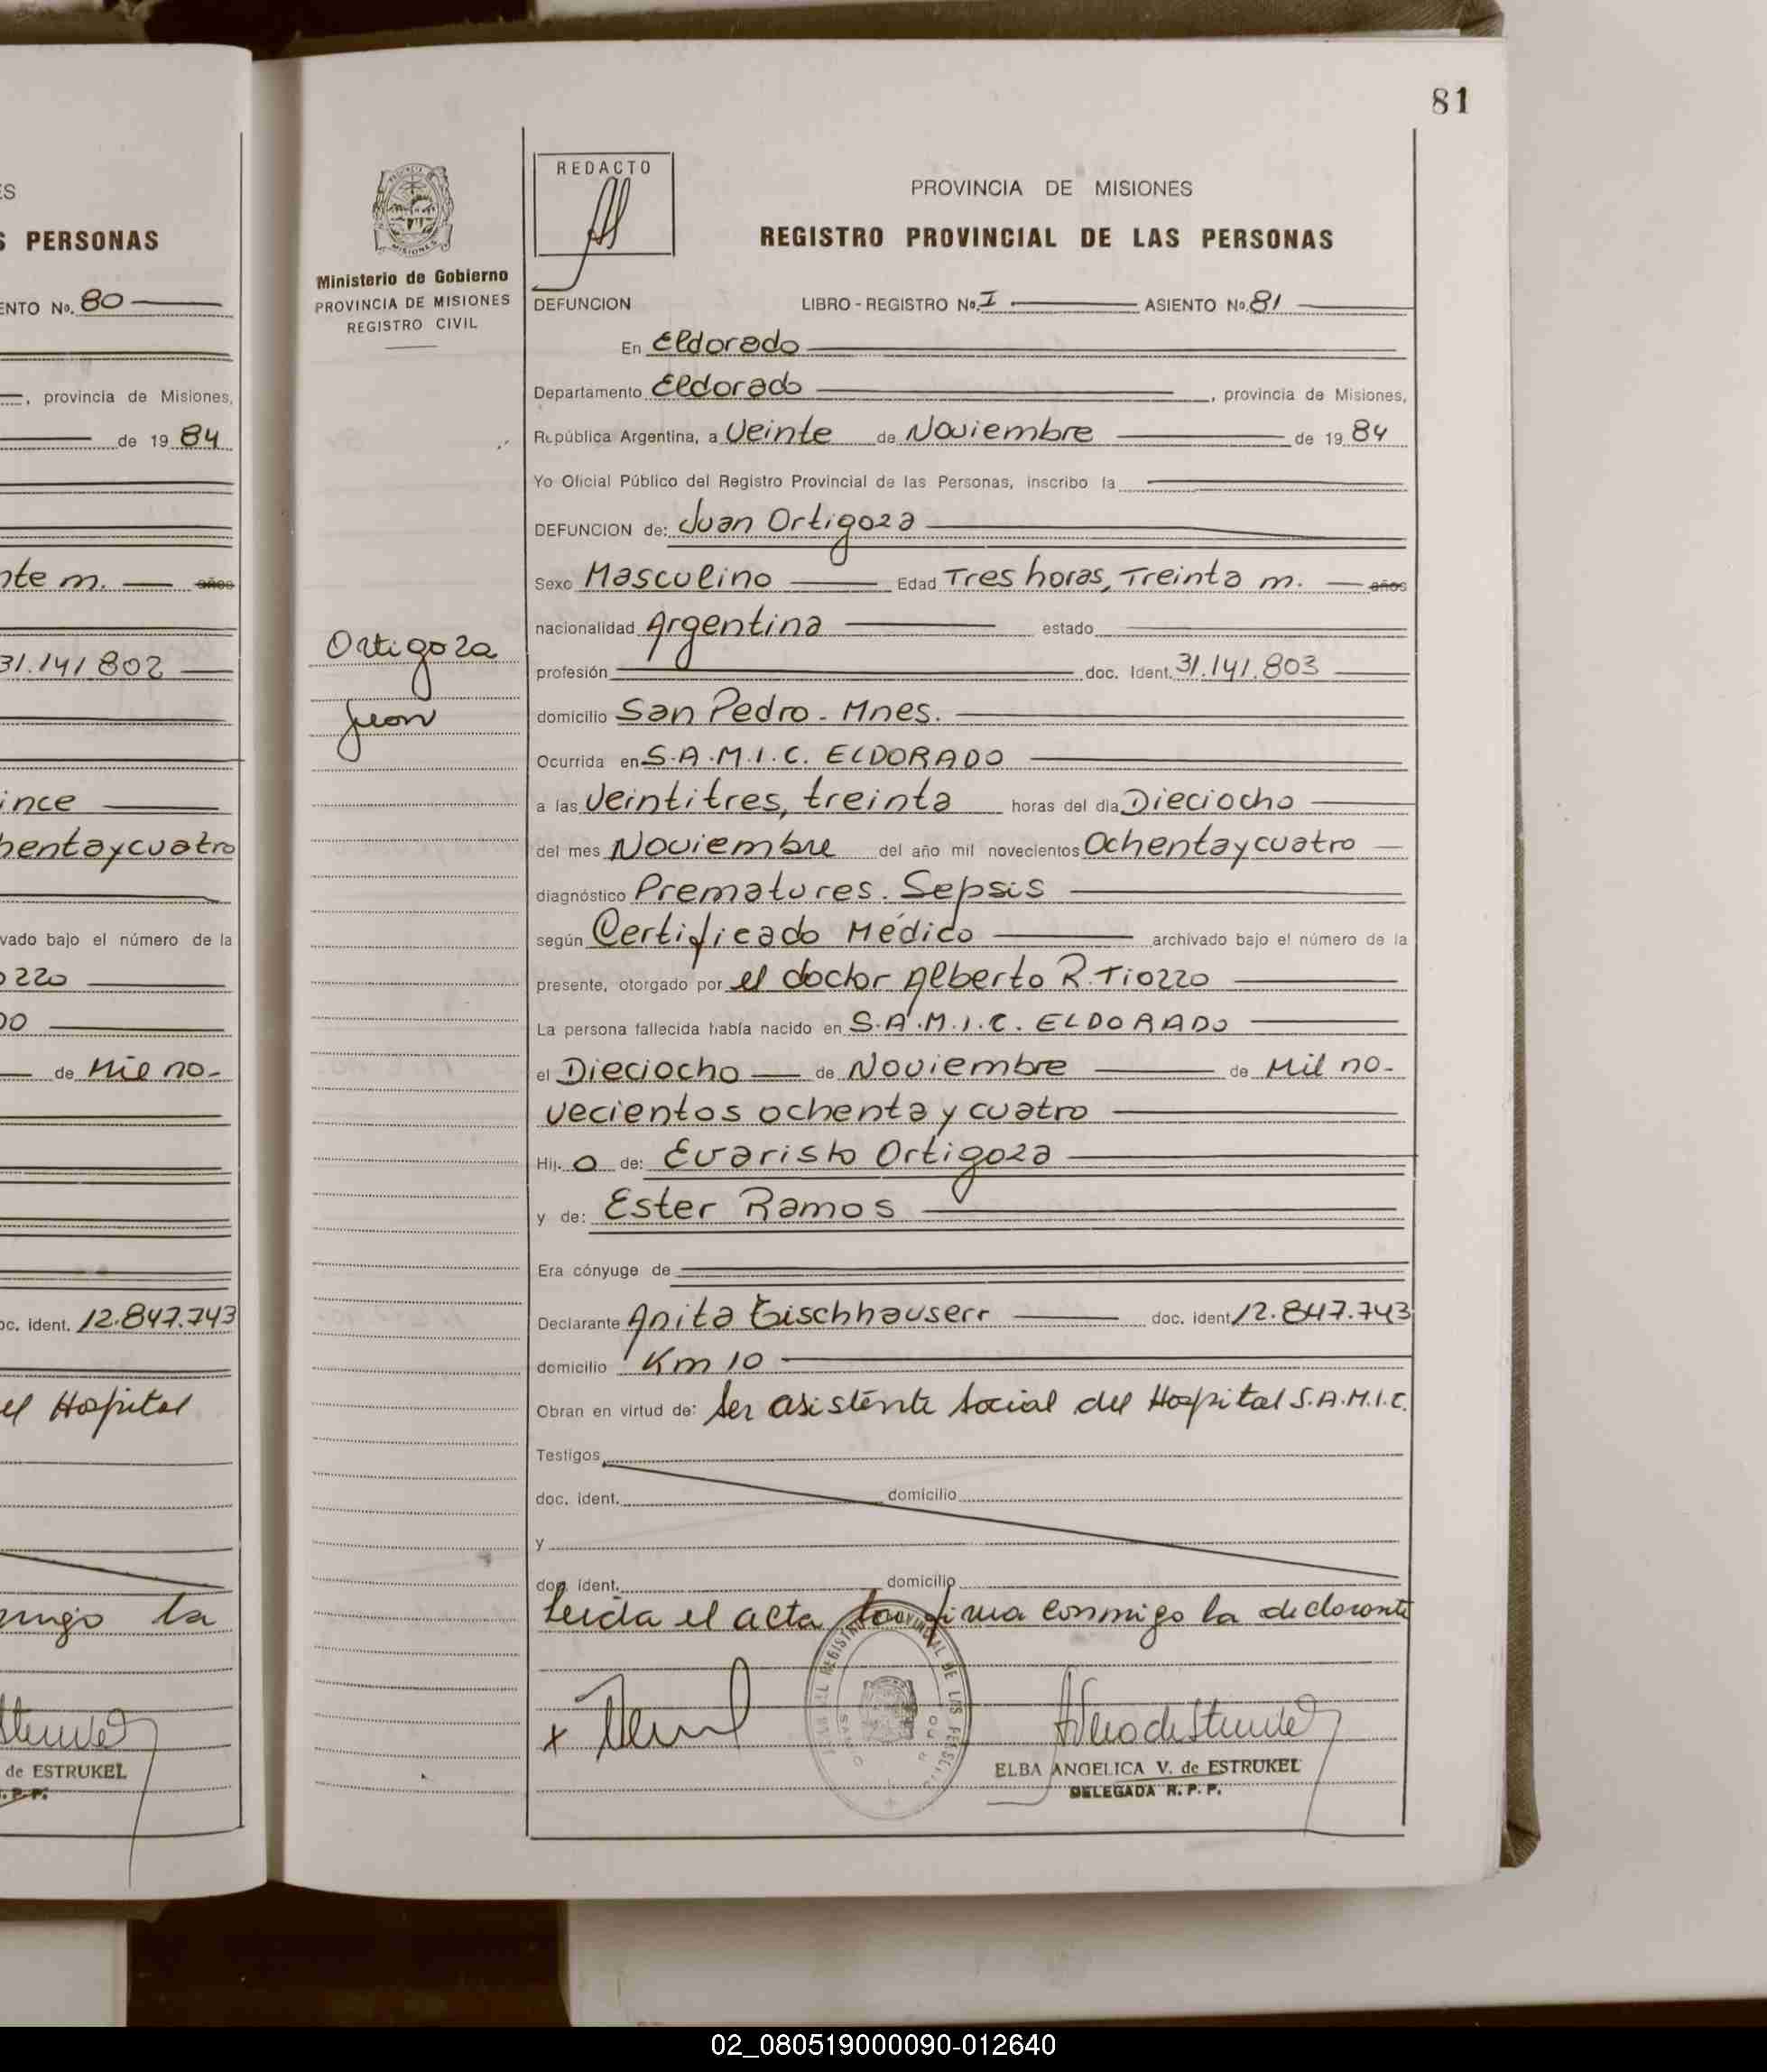 ES
S PERSONAS
ENTO No. 80
, provincia de Misiones,
de 19 84
nte m. años
31.141.802
ince
hentaycuatro
vado bajo el número de la
0220
00
de Mil no-
oc. ident. 12.847.743
el Hospital
migo la
de ESTRUKEL
. P. P.
81
Ministerio de Gobierno
PROVINCIA DE MISIONES
REGISTRO CIVIL
Ortigoza
Juan
REDACTO
PROVINCIA DE MISIONES
REGISTRO PROVINCIAL DE LAS PERSONAS
DEFUNCION LIBRO - REGISTRO No. I ASIENTO No. 81
En Eldorado
Departamento Eldorado , provincia de Misiones,
República Argentina, a Veinte de Noviembre de 19 84
Yo Oficial Público del Registro Provincial de las Personas, inscribo la
DEFUNCION de: Juan Ortigoza
Sexo Masculino Edad Tres horas, Treinta m. años
nacionalidad Argentina estado
profesión doc. Ident. 31.141.803
domicilio San Pedro - Mnes.
Ocurrida en S.A.M.I.C. ELDORADO
a las Veintitres, treinta horas del día Dieciocho
del mes Noviembre del año mil novecientos Ochentaycuatro
diagnóstico Prematures. Sepsis
según Certificado Médico archivado bajo el número de la
presente, otorgado por el doctor Alberto R. Tiozzo
La persona fallecida había nacido en S.A.M.I.C. ELDORADO
el Dieciocho de Noviembre de Mil no-
vecientos ochenta y cuatro
Hij. o de: Evaristo Ortigoza
y de: Ester Ramos
Era cónyuge de
Declarante Anita Eischhauserr doc. ident 12.847.743
domicilio Km 10
Obran en virtud de: Ser asistente social del Hospital S.A.M.I.C.
Testigos
doc. ident. domicilio
y
doc. ident. domicilio
Leida el acta la firma conmigo la declarante
x
ELBA ANGELICA V. de ESTRUKEL
DELEGADA R. P. P.
02_080519000090-012640